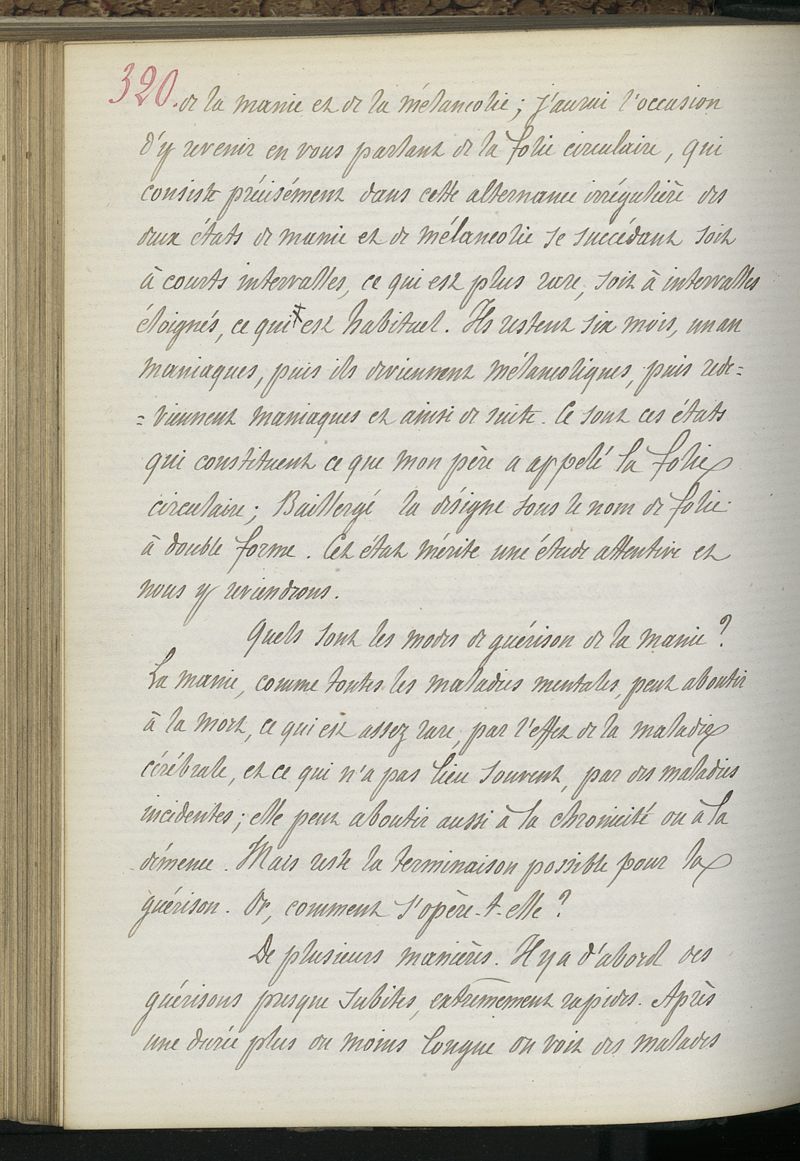 320. de la manie et de la mélancolie ; j'aurai l'occasion
d'y revenir en vous parlant de la folie circulaire, qui
consiste précisément dans cette alternance irrégulière des
deux états de manie et de mélancolie se succédant soit
à courts intervalles, ce qui est plus rare, soit à intervalles
éloignés, ce qui est habituel. Ils restent six mois, un an
maniaques, puis ils deviennent mélancoliques, puis rede=
= viennent maniaques et ainsi de suite. Ce sont ces états
qui constituent ce que mon père a appelé la folie
circulaire ; Baillergé la désigne sous le nom de folie
à double forme. Cet état mérite une étude attentive et
nous y reviendrons.
Quels sont les modes de guérison de la manie ?
La manie, comme toutes les maladies mentales, peut aboutir
à la mort, ce qui est assez rare, par l'effet de la maladie
cérébrale, et ce qui n'a pas lieu souvent, par des maladies
incidentes ; elle peut aboutir aussi à la chronicité ou à la
démence. Mais reste la terminaison possible pour la
guérison. Or, comment s'opère-t-elle ?
De plusieurs manières. Il y a d'abord des
guérisons presque subites, extrêmement rapides. Après
une durée plus ou moins longue on voit des malades